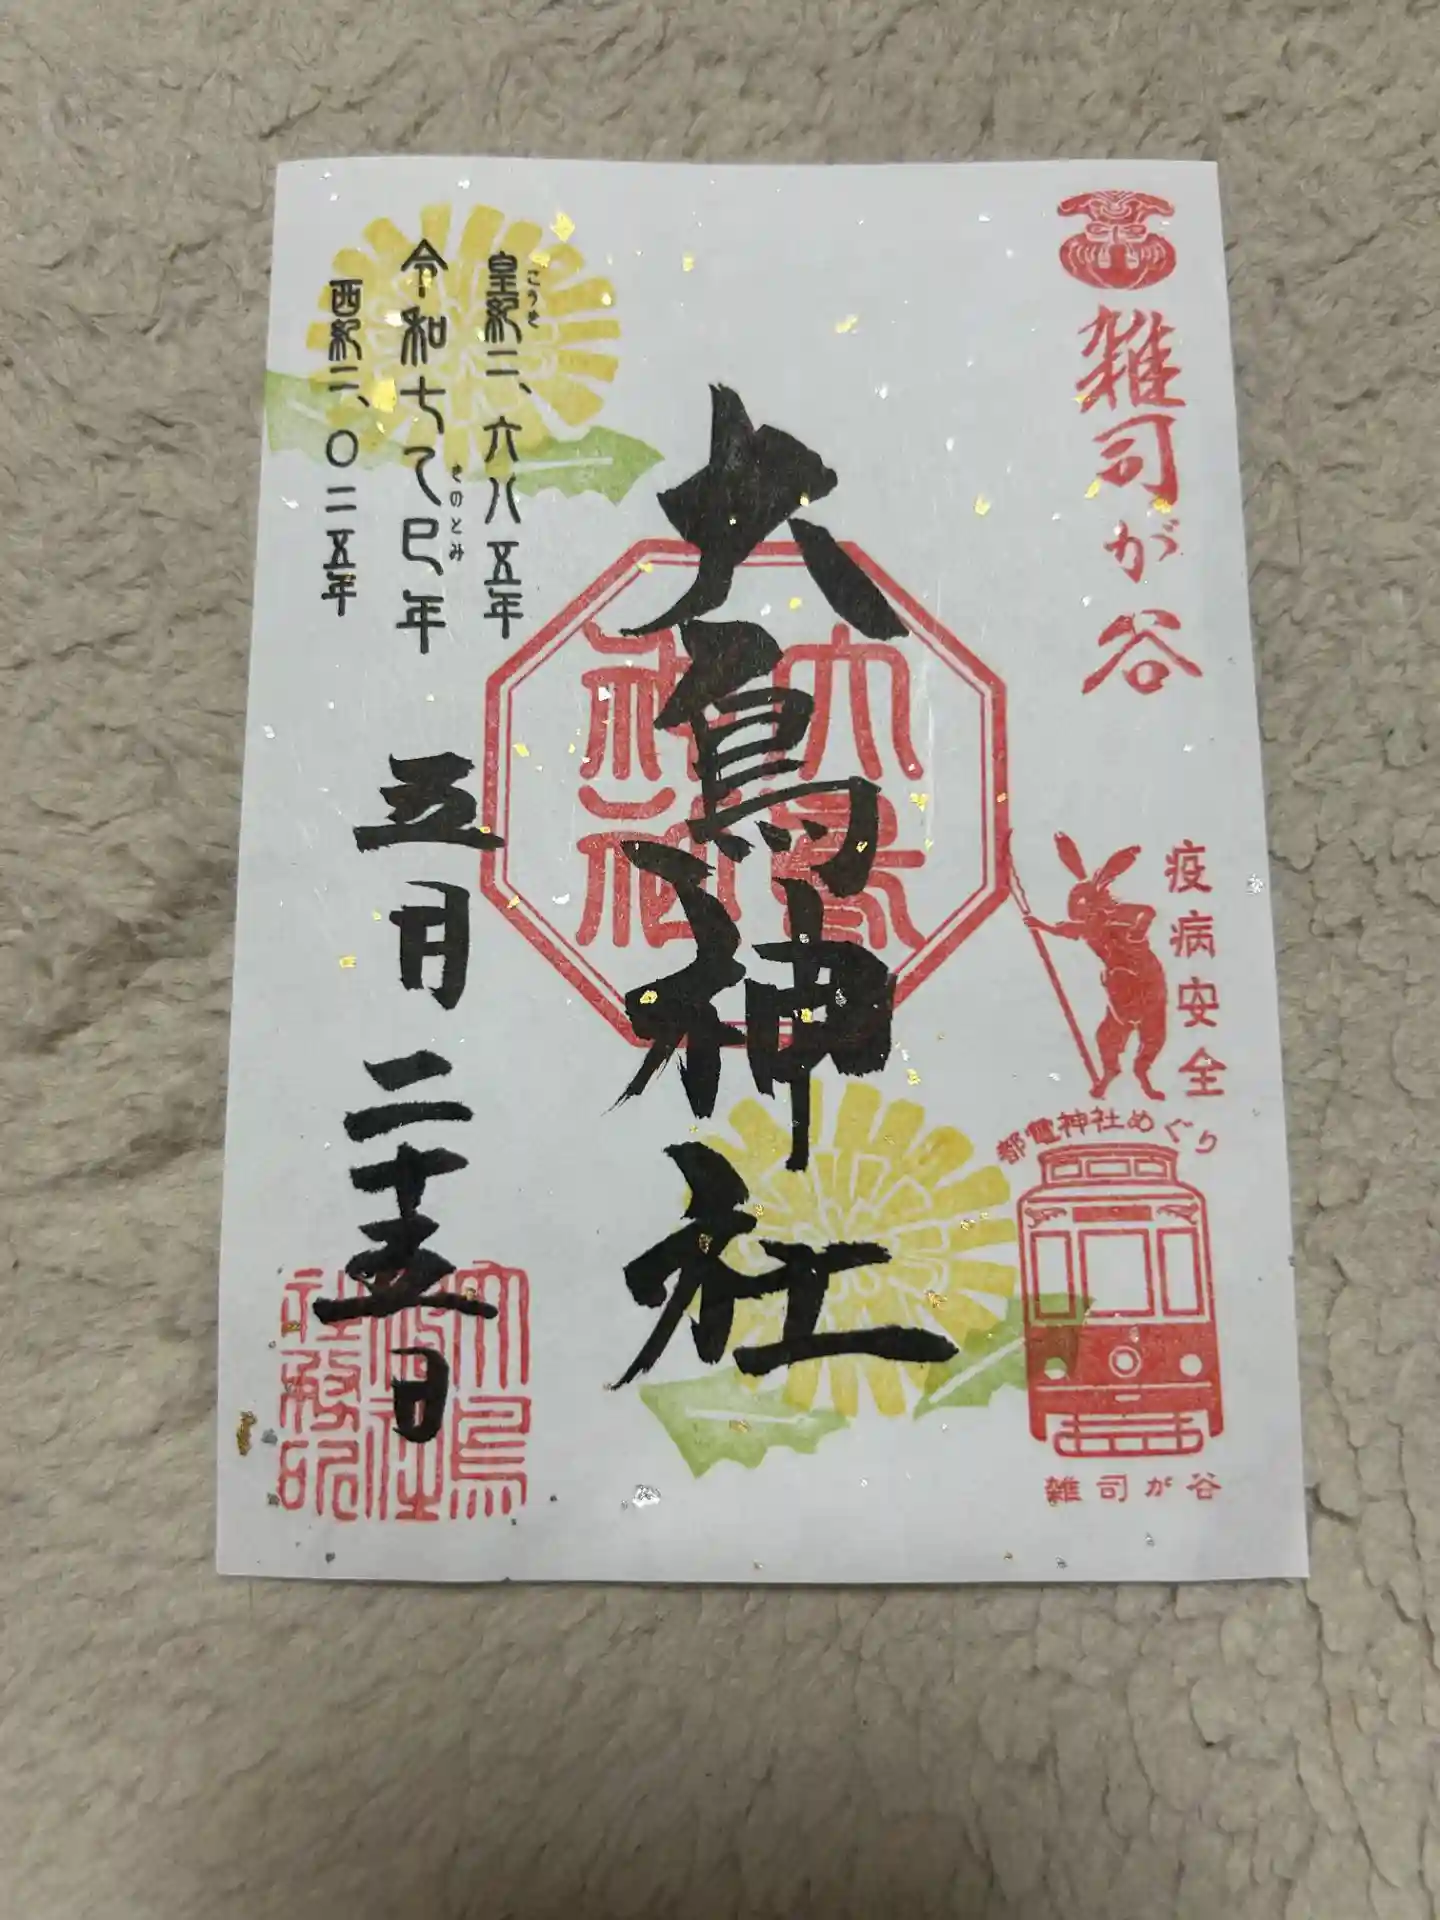 雑司が谷
疫病安全
都電神社めぐり
雑司が谷
大鳥神社
大鳥神社
皇紀二、六八五年
こうき
令和七乙巳年
きのとみ
西紀二、〇二五年
五月二十五日
大鳥神社社務所印